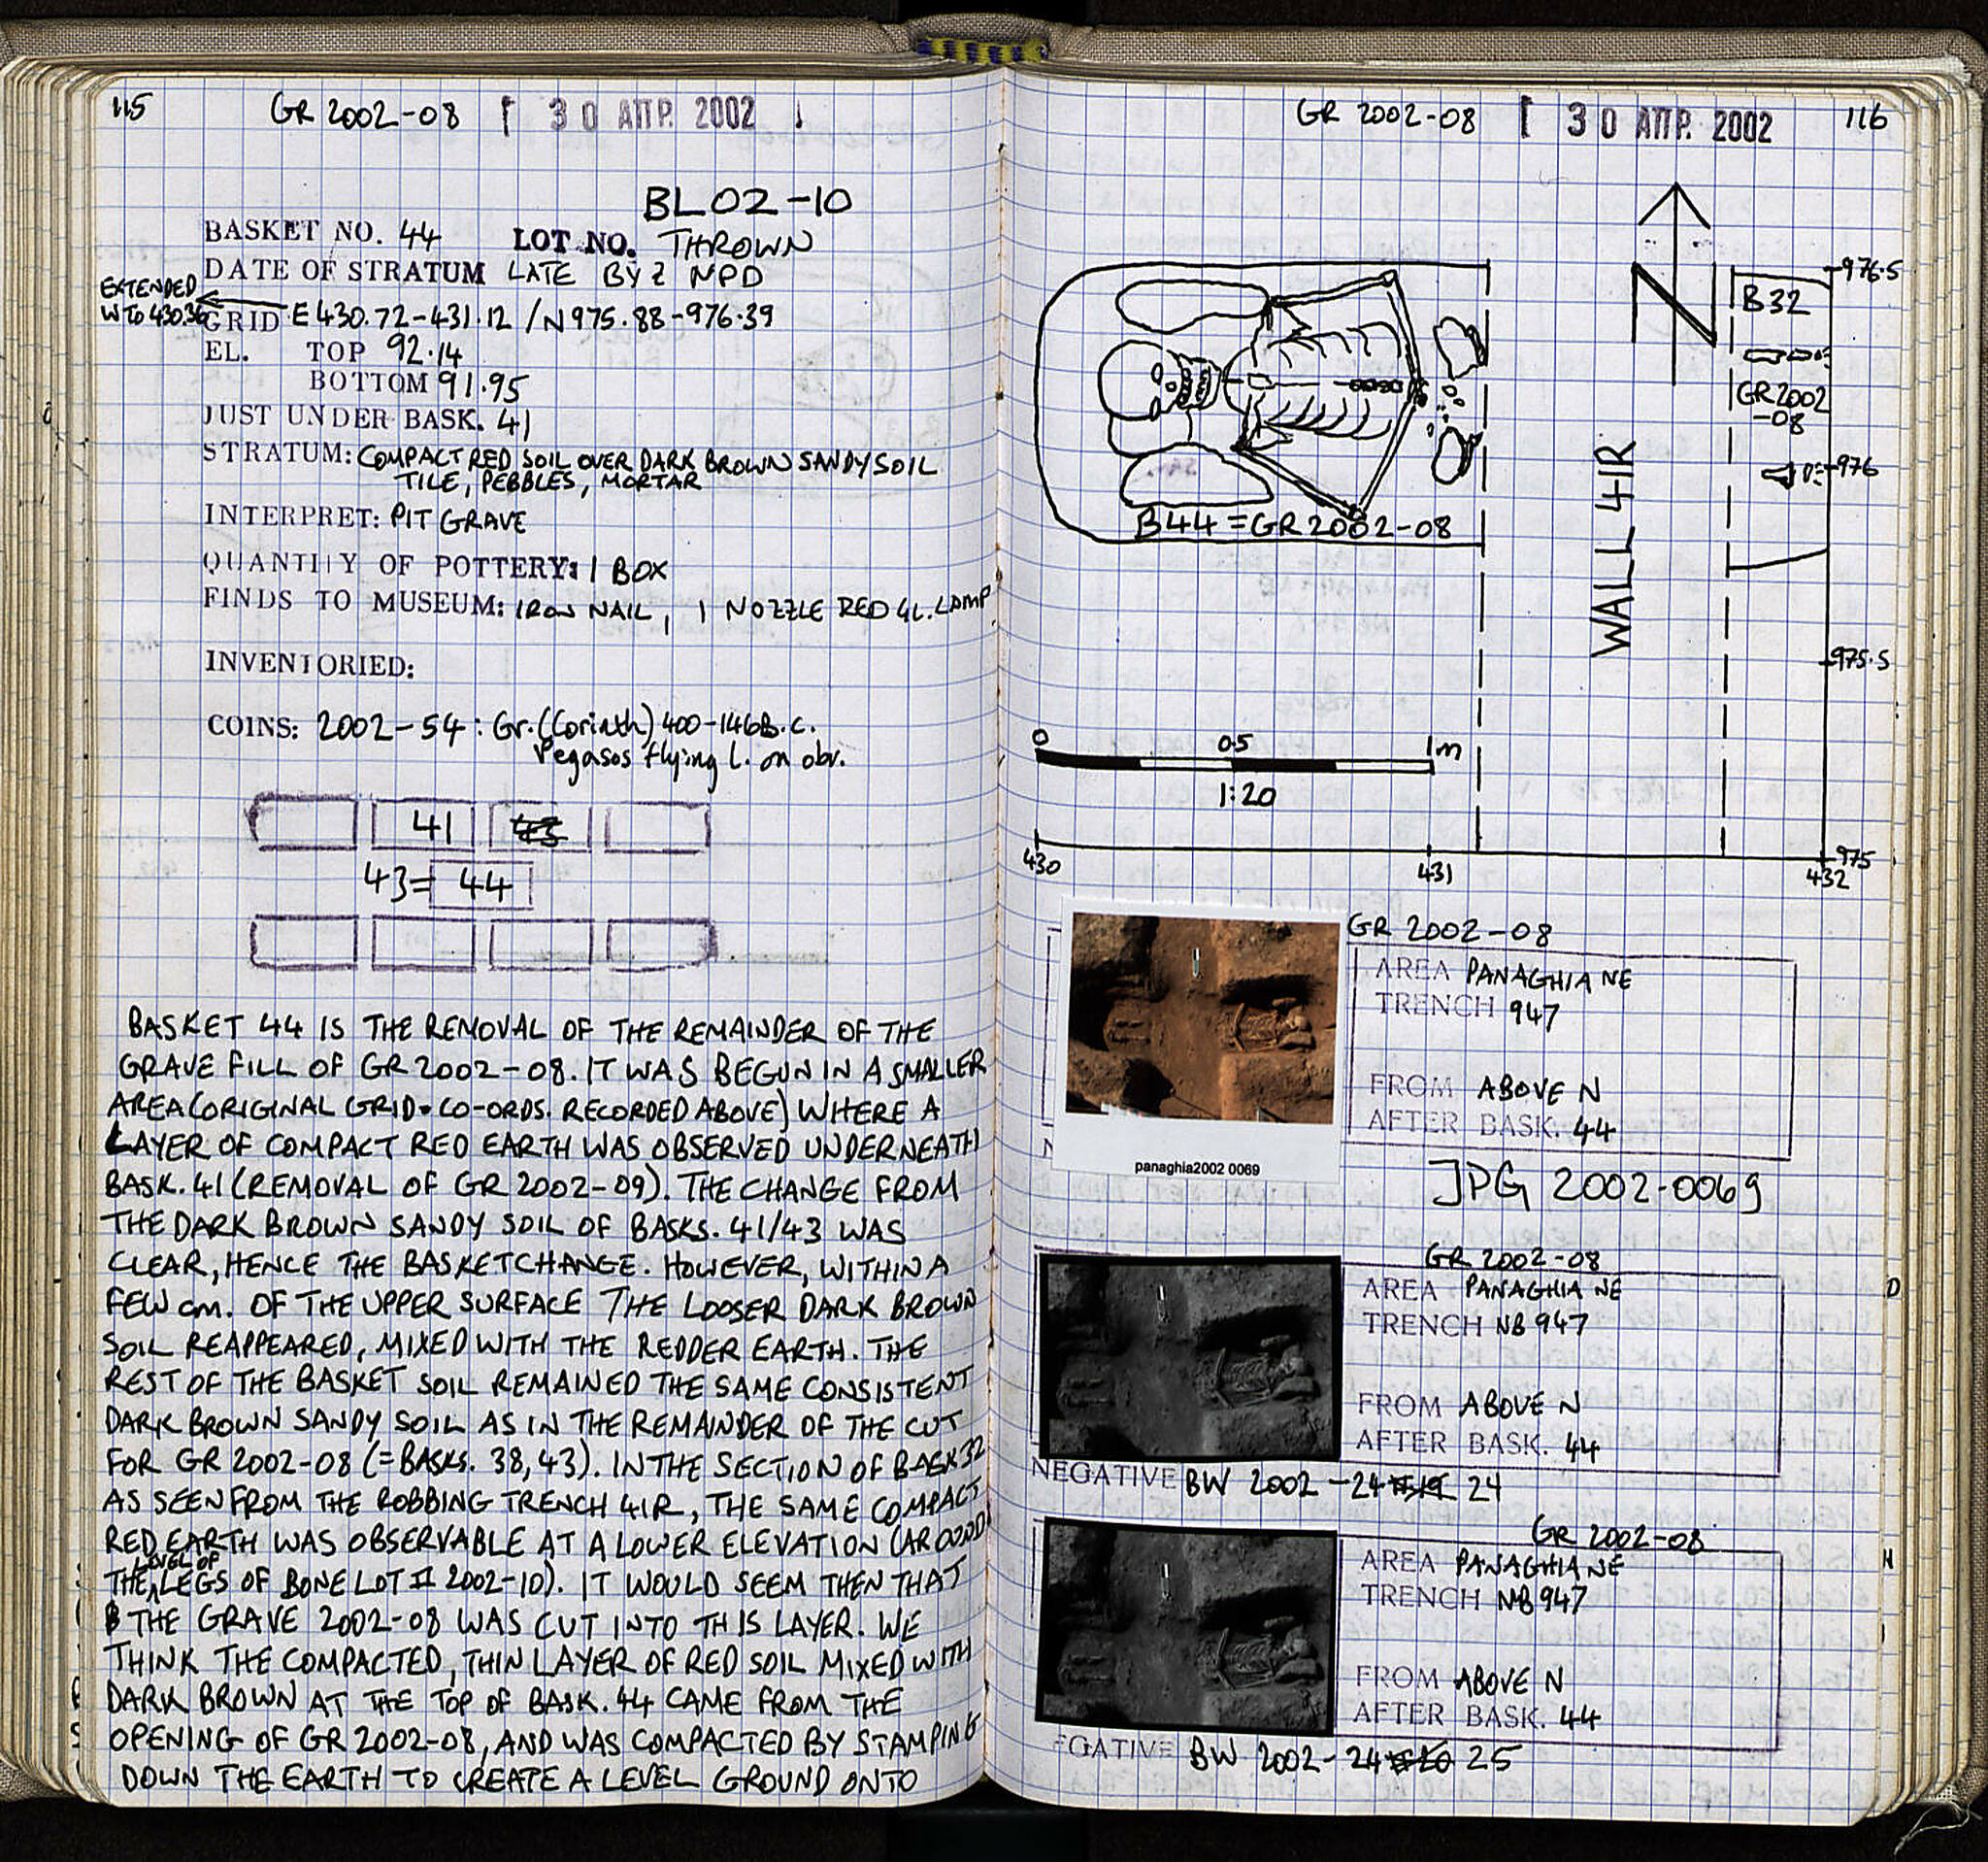 115 GR 2002-08 30 ΑΠΡ. 2002
BL02-10
BASKET NO. 44 LOT NO. THROWN
DATE OF STRATUM LATE BYZ NPD
EXTENDED
W TO 430.36
GRID E 430.72-431.12 / N 975.88-976.39
EL. TOP 92.14
BOTTOM 91.95
JUST UNDER BASK. 41
STRATUM: COMPACT RED SOIL OVER DARK BROWN SANDY SOIL
TILE, PEBBLES, MORTAR
INTERPRET: PIT GRAVE
QUANTITY OF POTTERY: 1 BOX
FINDS TO MUSEUM: IRON NAIL, 1 NOZZLE RED GL. LAMP
INVENTORIED:
COINS: 2002-54: Gr. (Corinth) 400-146 B.C.
Pegasos flying l. on obv.
41
43= 44
BASKET 44 IS THE REMOVAL OF THE REMAINDER OF THE
GRAVE FILL OF GR 2002-08. IT WAS BEGUN IN A SMALLER
AREA (ORIGINAL GRID CO-ORDS. RECORDED ABOVE) WHERE A
LAYER OF COMPACT RED EARTH WAS OBSERVED UNDERNEATH
BASK. 41 (REMOVAL OF GR 2002-09). THE CHANGE FROM
THE DARK BROWN SANDY SOIL OF BASKS. 41/43 WAS
CLEAR, HENCE THE BASKET CHANGE. HOWEVER, WITHIN A
FEW cm. OF THE UPPER SURFACE THE LOOSER DARK BROWN
SOIL REAPPEARED, MIXED WITH THE REDDER EARTH. THE
REST OF THE BASKET SOIL REMAINED THE SAME CONSISTENT
DARK BROWN SANDY SOIL AS IN THE REMAINDER OF THE CUT
FOR GR 2002-08 (= BASKS. 38, 43). IN THE SECTION OF BASK 32
AS SEEN FROM THE ROBBING TRENCH 41R, THE SAME COMPACT
RED EARTH WAS OBSERVABLE AT A LOWER ELEVATION (AROUND
THE LEVEL OF LEGS OF BONE LOT 2002-10). IT WOULD SEEM THEN THAT
THE GRAVE 2002-08 WAS CUT INTO THIS LAYER. WE
THINK THE COMPACTED, THIN LAYER OF RED SOIL MIXED WITH
DARK BROWN AT THE TOP OF BASK. 44 CAME FROM THE
OPENING OF GR 2002-08, AND WAS COMPACTED BY STAMPING
DOWN THE EARTH TO CREATE A LEVEL GROUND ONTO
GR 2002-08 30 ΑΠΡ. 2002 116
N
976.5
B32
GR 2002
-08
976
WALL 41R
B44 = GR 2002-08
975.5
0 0.5 1m
1:20
975
430 431 432
GR 2002-08
AREA PANAGHIA NE
TRENCH 947
FROM ABOVE N
AFTER BASK. 44
panaghia2002 0069
JPG 2002-0069
GR 2002-08
AREA PANAGHIA NE
TRENCH NB 947
FROM ABOVE N
AFTER BASK. 44
NEGATIVE BW 2002-24 24
GR 2002-08
AREA PANAGHIA NE
TRENCH NB 947
FROM ABOVE N
AFTER BASK. 44
EGATIVE BW 2002-24 25